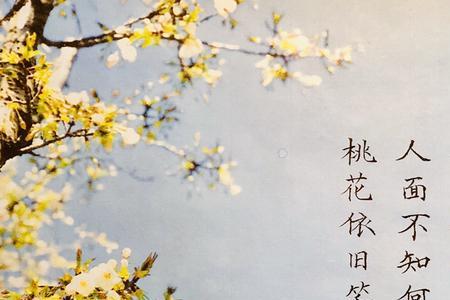 人面不知何
桃花依旧笑